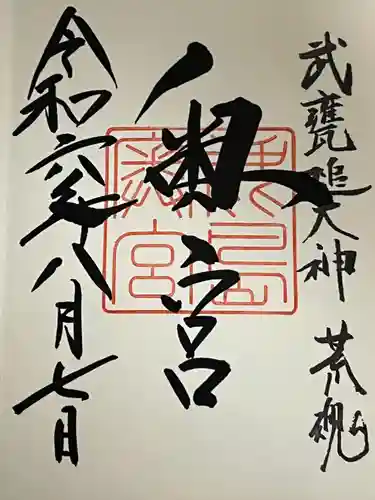 武甕槌大神 荒魂
奥宮
鹿島神宮
令和六年八月七日